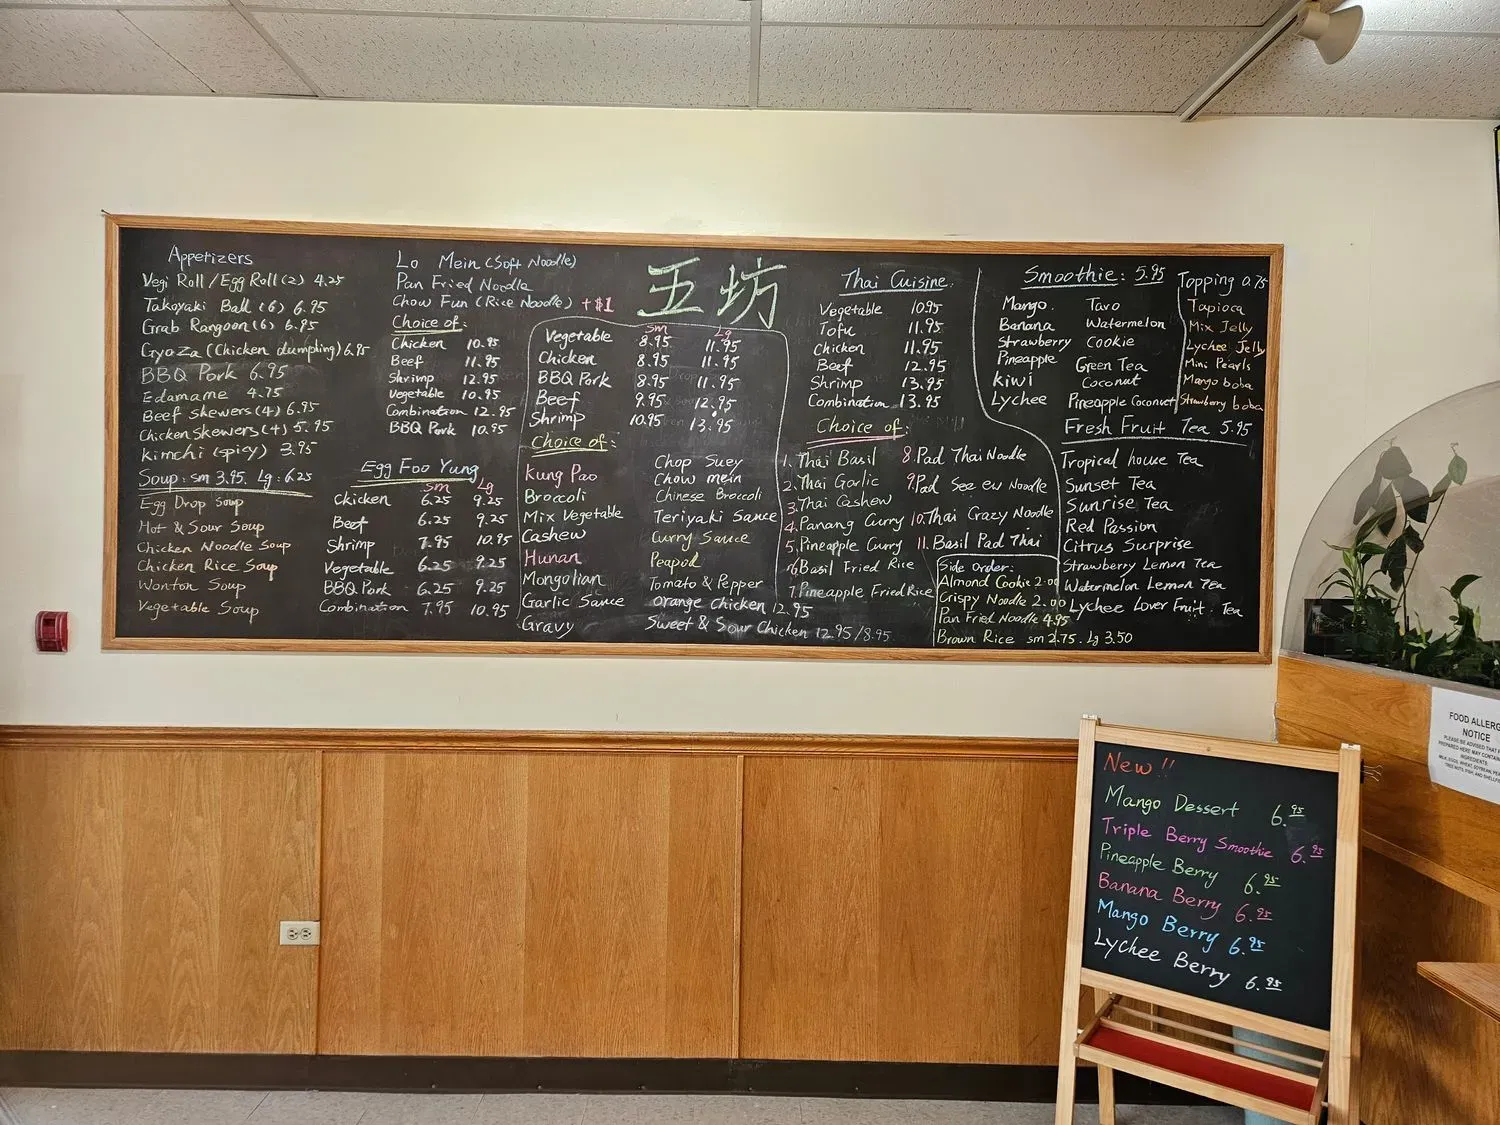 Appetizers
Vegi Roll/Egg Roll (2) 4.25
Takoyaki Ball (6) 6.95
Grab Rangoon (6) 6.95
Gyoza (Chicken dumpling) 6.95
BBQ Pork 6.95
Edamame 4.75
Beef Skewers (4) 6.95
Chicken Skewers (4) 5.95
Kimchi (spicy) 3.95
Soup: sm 3.95 Lg: 6.25
Egg Drop Soup
Hot & Sour Soup
Chicken Noodle Soup
Chicken Rice Soup
Wonton Soup
Vegetable Soup
Lo Mein (Soft Noodle)
Pan Fried Noodle
Chow Fun (Rice Noodle) +$1
Choice of:
Chicken 10.95
Beef 11.95
Shrimp 12.95
Vegetable 10.95
Combination 12.95
BBQ Pork 10.95
Egg Foo Yung
sm Lg
Chicken 6.25 9.25
Beef 6.25 9.25
Shrimp 7.95 10.95
Vegetable 6.25 9.25
BBQ Pork 6.25 9.25
Combination 7.95 10.95
五坊
sm Lg
Vegetable 8.95 11.95
Chicken 8.95 11.95
BBQ Pork 8.95 11.95
Beef 9.95 12.95
Shrimp 10.95 13.95
Choice of:
Kung Pao
Broccoli
Mix Vegetable
Cashew
Hunan
Mongolian
Garlic Sauce
Gravy
Chop Suey
Chow mein
Chinese Broccoli
Teriyaki Sauce
Curry Sauce
Peapod
Tomato & Pepper
Orange Chicken 12.95
Sweet & Sour Chicken 12.95/8.95
Thai Cuisine.
Vegetable 10.95
Tofu 11.95
Chicken 11.95
Beef 12.95
Shrimp 13.95
Combination 13.95
Choice of:
1. Thai Basil
2. Thai Garlic
3. Thai Cashew
4. Panang Curry
5. Pineapple Curry
6. Basil Fried Rice
7. Pineapple Fried Rice
8. Pad Thai Noodle
9. Pad See ew Noodle
10. Thai Crazy Noodle
11. Basil Pad Thai
Side Order:
Almond Cookie 2.00
Crispy Noodle 2.00
Pan Fried Noodle 4.95
Brown Rice sm 2.75. Lg 3.50
Smoothie: 5.95
Mango.
Banana
Strawberry
Pineapple
Kiwi
Lychee
Taro
Watermelon
Cookie
Green Tea
Coconut
Pineapple Coconut
Topping 0.75
Tapioca
Mix Jelly
Lychee Jelly
Mini Pearls
Mango boba
Strawberry boba
Fresh Fruit Tea 5.95
Tropical house Tea
Sunset Tea
Sunrise Tea
Red Passion
Citrus Surprise
Strawberry Lemon Tea
Watermelon Lemon Tea
Lychee Lover Fruit. Tea
FOOD ALLERG
NOTICE
New!!
Mango Dessert 6.95
Triple Berry Smoothie 6.95
Pineapple Berry 6.95
Banana Berry 6.95
Mango Berry 6.95
Lychee Berry 6.95